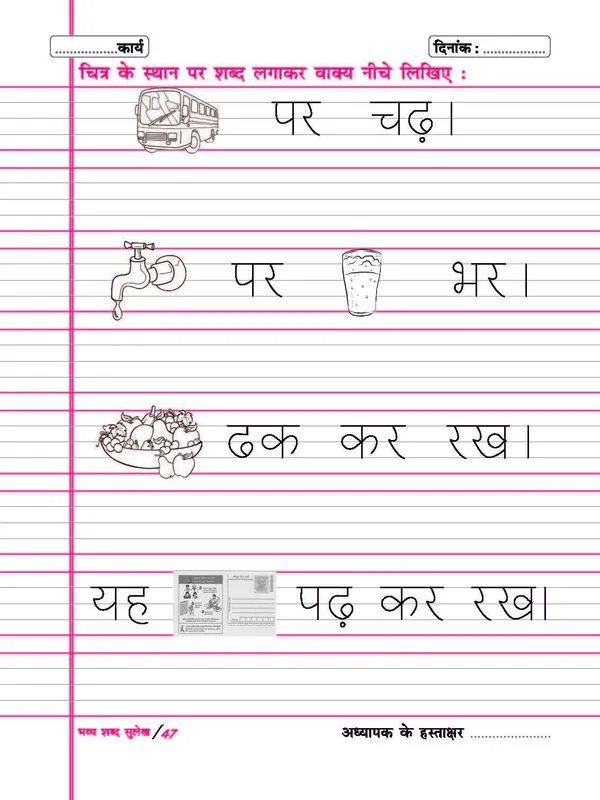 ..................कार्य
दिनांक : ..................
चित्र के स्थान पर शब्द लगाकर वाक्य नीचे लिखिए :
पर चढ़।
पर भर।
ढक कर रख।
यह पढ़ कर रख।
भव्य शब्द सुलेख/47
अध्यापक के हस्ताक्षर ......................